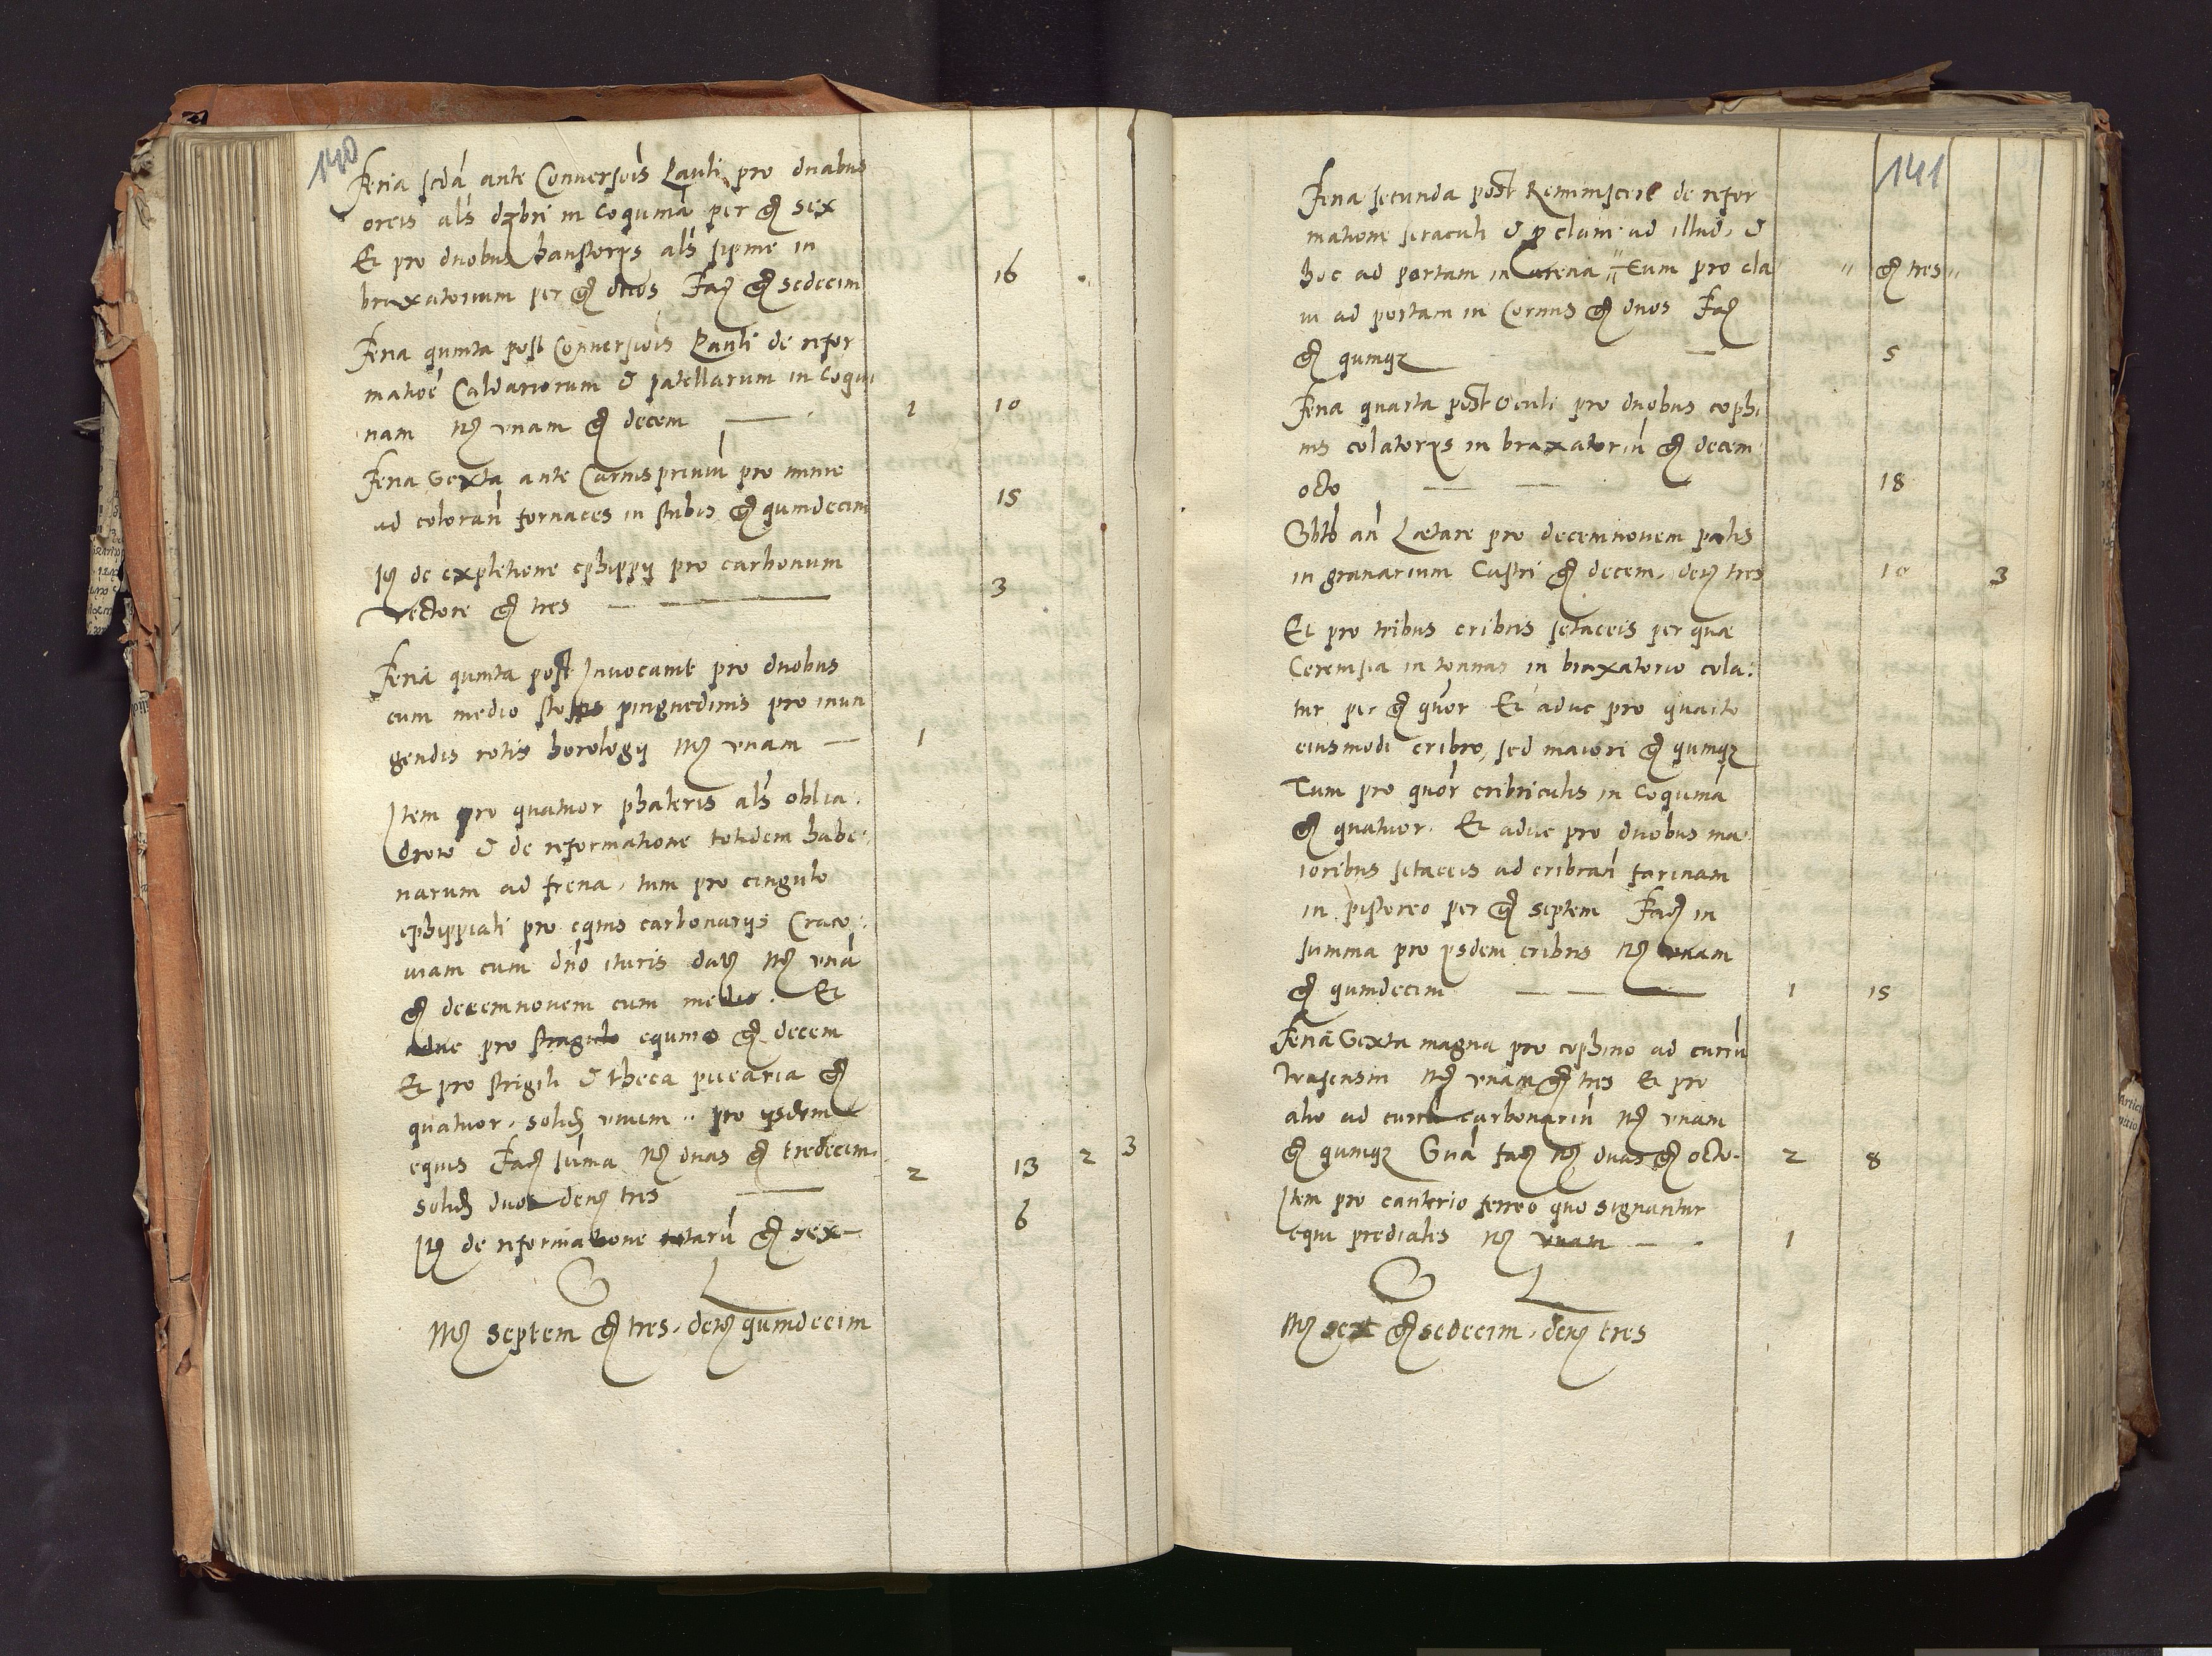 140
Feria scda ante Conversois Pauli pro duabus
orcis als dzbri in Coquina per gr sex
Et pro duobus haustorijs als sipme in
braxatorium per gr duos Fac gr sedecim 16
Feria quinta post Conversiois Pauli de refor
matioe Caldariorum et patellarum in Coqui
nam Mr unam gr decem — 1 10
Feria Sexta ante Carnisprivium pro minio
ad coloran fornaces in stubis gr quindecim 15
It de expletione ephippij pro carbonum
vectore gr tres — 3
Feria quinta post Invocavit pro duobus
cum medio pinguedinis pro inun
gendis rotis horologij Mr unam — 1
Item pro quatuor phaleris als oblia
et de reformatione totidem habe:
narum ad frena, tum pro cingulo
ephippiali pro equis carbonarijs Craco:
viam cum dno ituris dat Mr una
gr decemnovem cum medio. Et
aduc pro stragulo equino gr decem
Et pro strigili et theca picearia gr
quatuor. solid unum pro ijsdem
equis Fac suma Mr duas gr tredecim
solid duos den tres — 2 13 2 3
It de reformatione rotaru gr sex — 6
S L
Mr septem gr tres. den quindecim
141
Feria secunda post Reminiscere de refor
matione seraculi et p clavi ad illud, et
hoc ad portam in Catena " Cum pro cla " gr tres "
vi ad portam in Cornus gr duos Fac
gr quinqz — 5
Feria quarta post Oculi pro duobus cophi
nis colatorijs in braxatoriu gr decem
octo — — 18
Sbto an Laetare pro decemnovem palis
in granarium Castri gr decem, den tres 10 3
Et pro tribus cribris setaceis per quae
Cerevisia in tonnas in braxatorio cola:
tur per gr quor Et aduc pro quarto
eiusmodi cribro, sed maiori gr quinqz
Tum pro quor cribriculis in Coquina
gr quatuor. Et aduc pro duobus ma:
ioribus setaceis ad cribran farinam
in pistoreo per gr septem Fac in
summa pro ijsdem cribris Mr unam
gr quindecim — — — 1 15
Feria Sexta magna pro cophino ad curru
Mr unam gr tres Et pro
alio ad curru carbonariu Mr unam
gr quinqz Sua fac Mr duas gr octo 2 8
Item pro cauterio ferreo quo signantur
equi prediales Mr unam — 1
S L
Mr sex gr sedecim, den tres